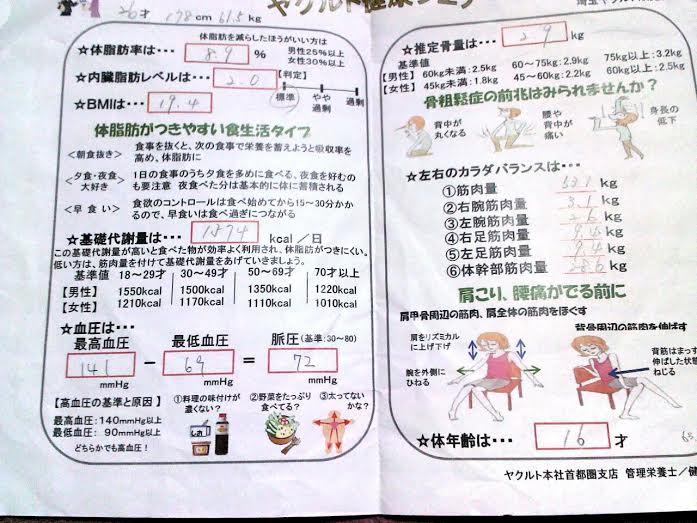 26才 178cm 61.5kg
☆体脂肪率は･･･ 8.9 %
体脂肪を減らしたほうがいい方は
男性25%以上
女性30%以上
☆内臓脂肪レベルは･･･ 2.0
【判定】
標準 やや過剰 過剰
☆BMIは･･･ 19.4
体脂肪がつきやすい食生活タイプ
<朝食抜き> 食事を抜くと、次の食事で栄養を蓄えようと吸収率を高め、体脂肪に
<夕食・夜食大好き> 1日の食事のうち夕食を多めに食べる、夜食を好むのも要注意 夜食べた分は基本的に体に蓄積される
<早食い> 食欲のコントロールは食べ始めてから15～30分かかるので、早食いは食べ過ぎにつながる
☆基礎代謝量は･･･ kcal／日
この基礎代謝量が高いと食べた物が効率よく利用され、体脂肪がつきにくい。
低い方は、筋肉量を付けて基礎代謝量をあげていきましょう。
基準値 18～29才 30～49才 50～69才 70才以上
【男性】 1550kcal 1500kcal 1350kcal 1220kcal
【女性】 1210kcal 1170kcal 1110kcal 1010kcal
☆血圧は･･･
最高血圧 最低血圧 脈圧(基準:30～80)
141 － 69 = 72
mmHg mmHg mmHg
【高血圧の基準と原因】
最高血圧:140mmHg以上
最低血圧: 90mmHg以上
どちらかでも高血圧！
①料理の味付けが濃くない？
②野菜をたっぷり食べてる？
③太ってないかな？
しお
☆推定骨量は･･･ 2.9 kg
基準値
【男性】 60kg未満:2.5kg 60～75kg:2.9kg 75kg以上:3.2kg
【女性】 45kg未満:1.8kg 45～60kg:2.2kg 60kg以上:2.5kg
骨粗鬆症の前兆はみられませんか？
背中が丸くなる
腰や背中が痛い
身長の低下
☆左右のカラダバランスは･･･
①筋肉量 kg
②右腕筋肉量 3.1 kg
③左腕筋肉量 2.6 kg
④右足筋肉量 9.4 kg
⑤左足筋肉量 9.4 kg
⑥体幹部筋肉量 28.6 kg
肩こり、腰痛がでる前に
肩甲骨周辺の筋肉、肩全体の筋肉をほぐす
背骨周辺の筋肉を伸ばす
肩をリズミカルに上げ下げ
腕を外側にひねる
背筋はまっす
伸ばした状態
ねじる
☆体年齢は･･･ 16 才
ヤクルト本社首都圏支店 管理栄養士／健